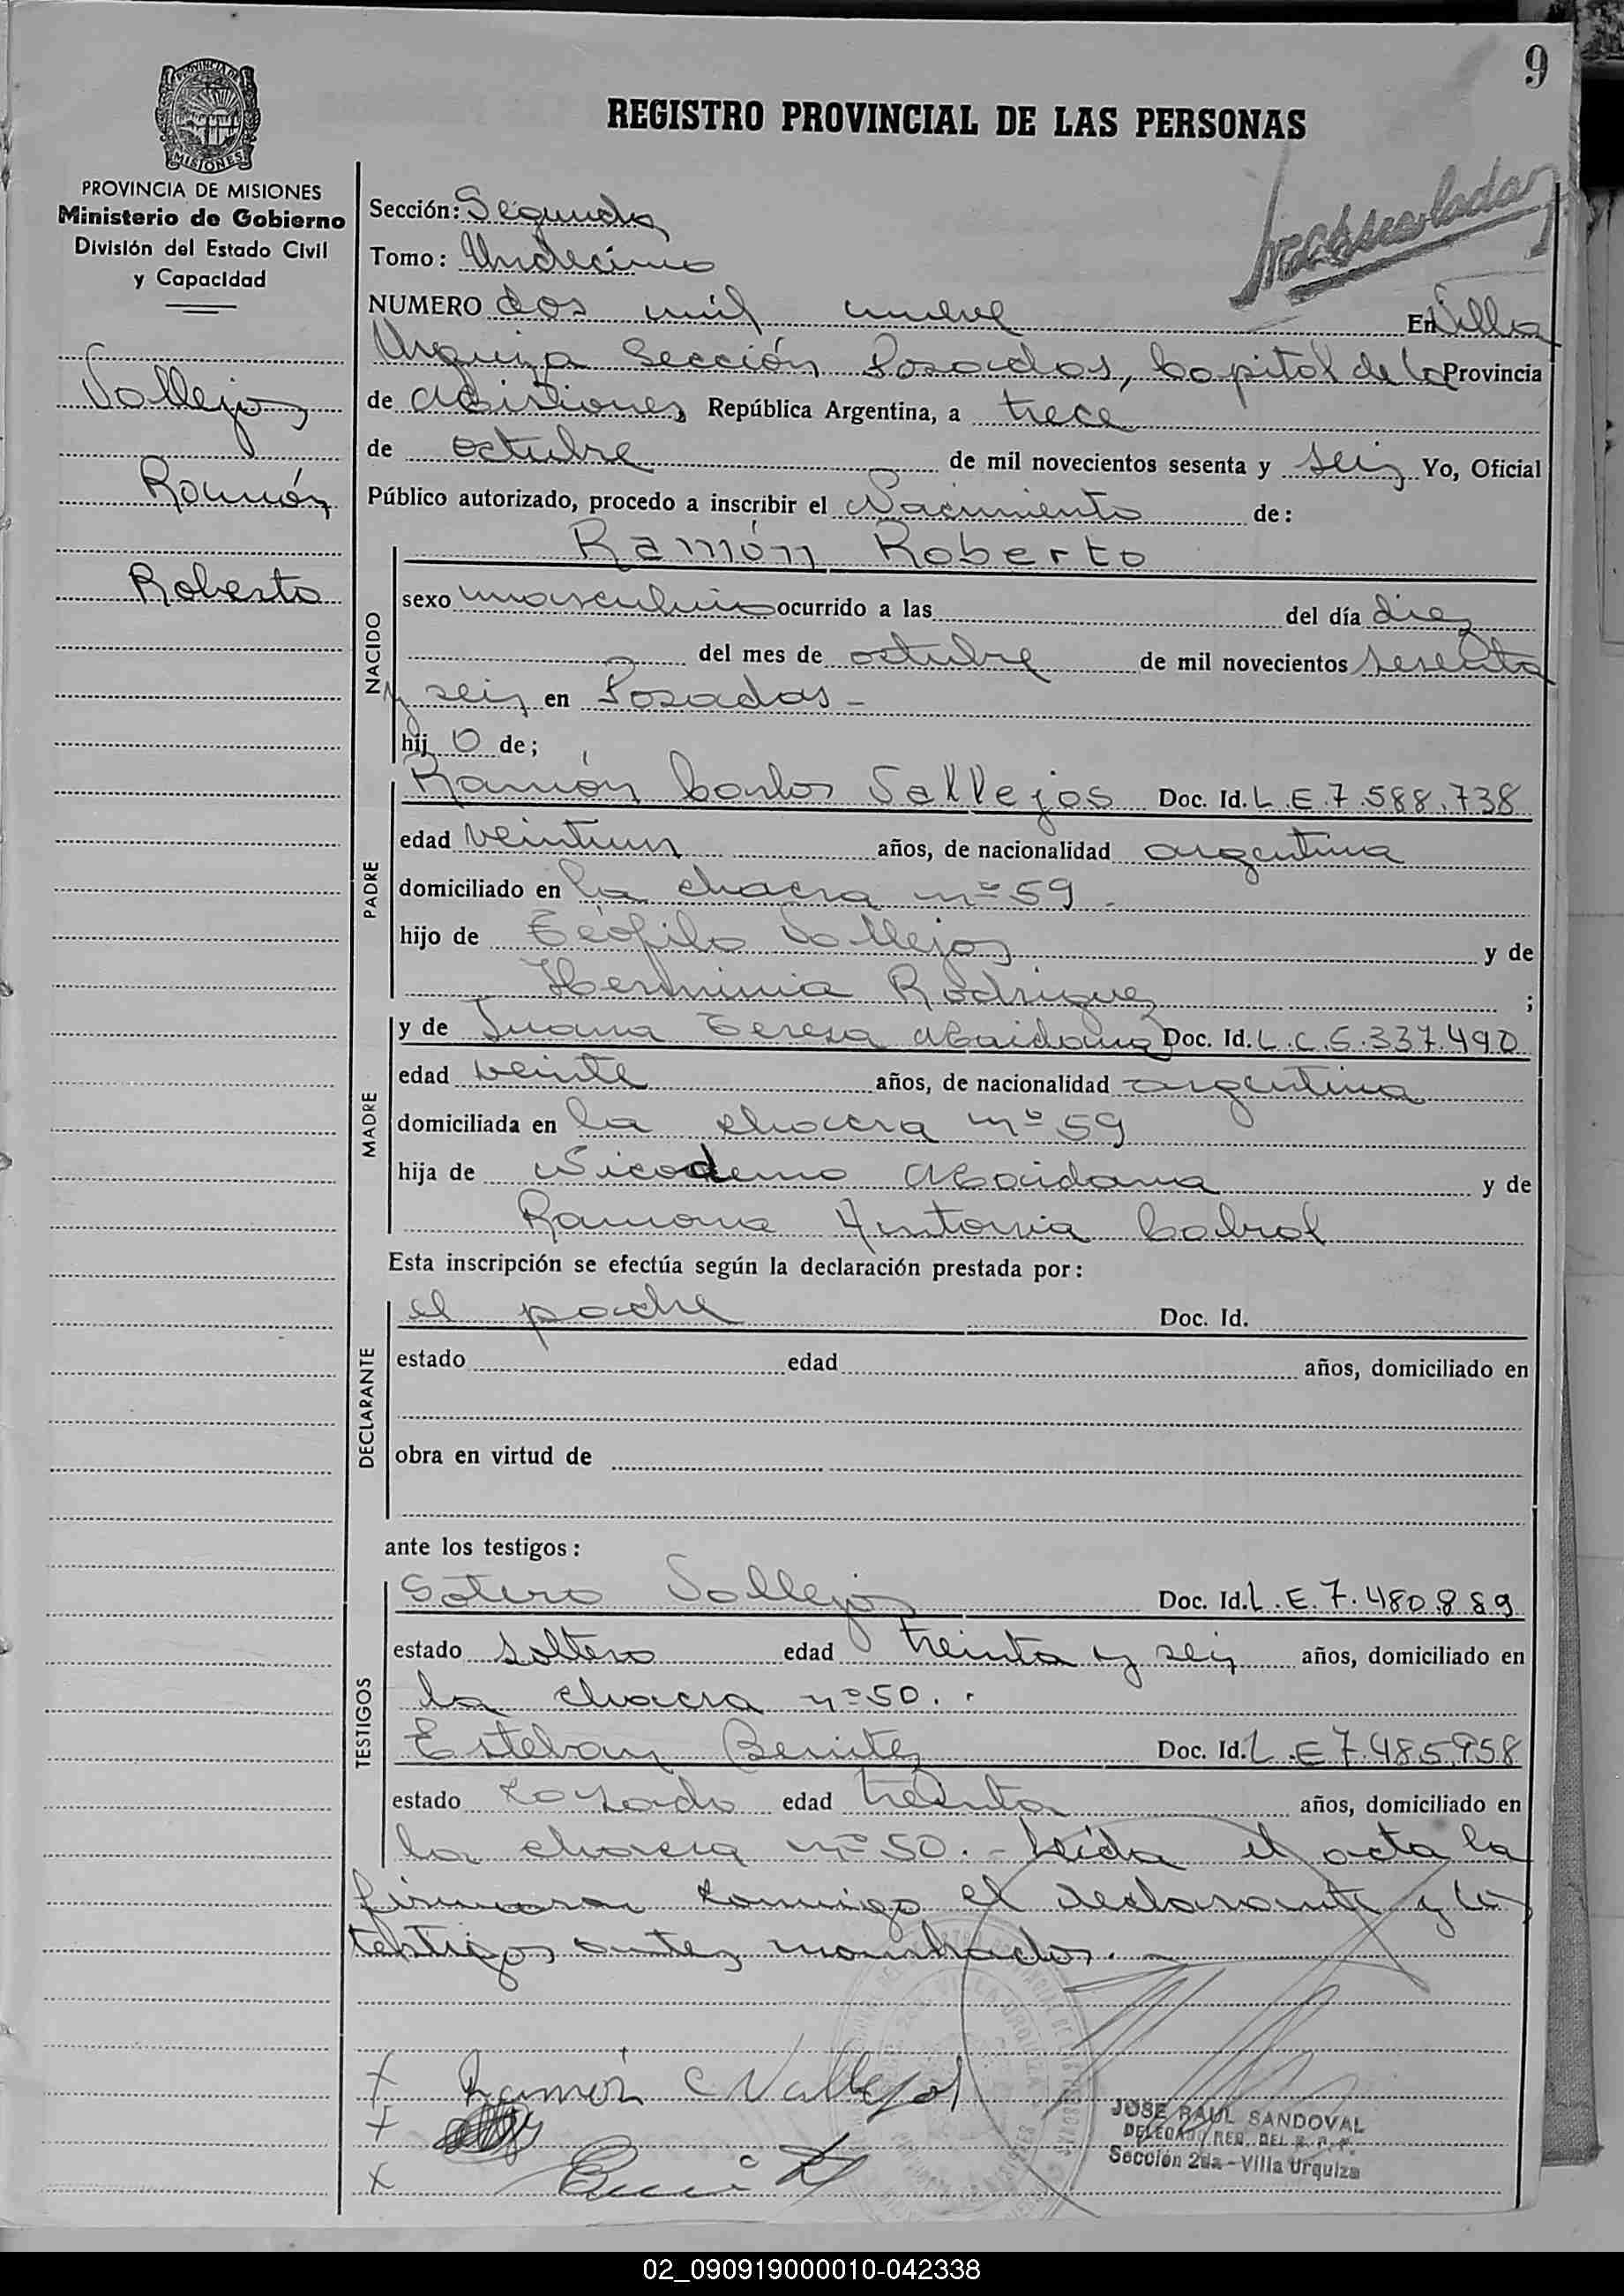 9
PROVINCIA DE
MISIONES
REGISTRO PROVINCIAL DE LAS PERSONAS
PROVINCIA DE MISIONES
Ministerio de Gobierno
División del Estado Civil
y Capacidad
Vallejos
Ramón
Roberto
Sección: Segunda
Tomo: Undecimo
NUMERO dos mil nueve En Villa
Urquiza Sección Posadas, Capital de la Provincia
de Misiones República Argentina, a trece
de octubre de mil novecientos sesenta y seis Yo, Oficial
Público autorizado, procedo a inscribir el Nacimiento de:
NACIDO
Ramón Roberto
sexo masculino ocurrido a las del día diez
del mes de octubre de mil novecientos sesenta
y seis en Posadas -
hij o de;
PADRE
Ramón Carlos Vallejos Doc. Id. L.E.7.588.738
edad veintiun años, de nacionalidad argentina
domiciliado en la chacra nº 59.
hijo de Teófilo Vallejos y de
Herminia Rodriguez ;
MADRE
y de Juana Teresa Maidana Doc. Id. L.C.5.337.490
edad veinte años, de nacionalidad argentina
domiciliada en la chacra nº 59
hija de Nicodemo Maidana y de
Ramona Antonia Cabral
Esta inscripción se efectúa según la declaración prestada por:
DECLARANTE
el padre Doc. Id.
estado edad años, domiciliado en
obra en virtud de
ante los testigos:
TESTIGOS
Sotero Vallejos Doc. Id. L.E.7.480.889
estado soltero edad treinta y seis años, domiciliado en
la chacra nº 50.
Esteban Benitez Doc. Id. L.E.7.485.958
estado casado edad treinta años, domiciliado en
la chacra nº 50. - Leída el acta la
firmaron conmigo el declarante y los
testigos antes nombrados. -
x Ramón C Vallejos
x
x
JOSE RAUL SANDOVAL
DELEGADO REG. DEL R. P. P.
Sección 2da - Villa Urquiza
02_090919000010-042338